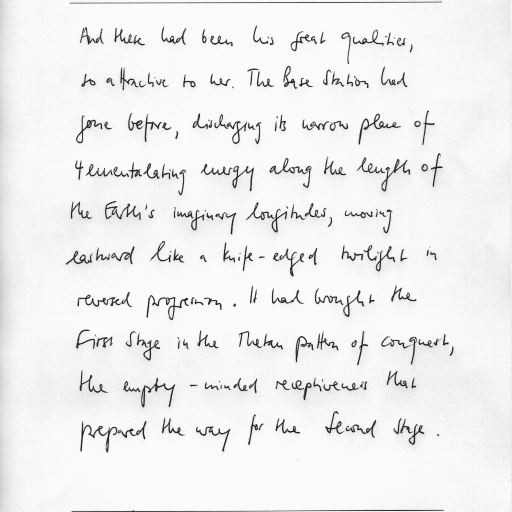 And these had been his great qualities,
so attractive to her. The Base Station had
gone before, discharging its narrow plane of
energy along the length of
the Earth's imaginary longitudes, moving
eastward like a knife-edged twilight in
reversed progression. It had brought the
First Stage in the Thetan pattern of conquest,
the empty-minded receptiveness that
prepared the way for the Second Stage.